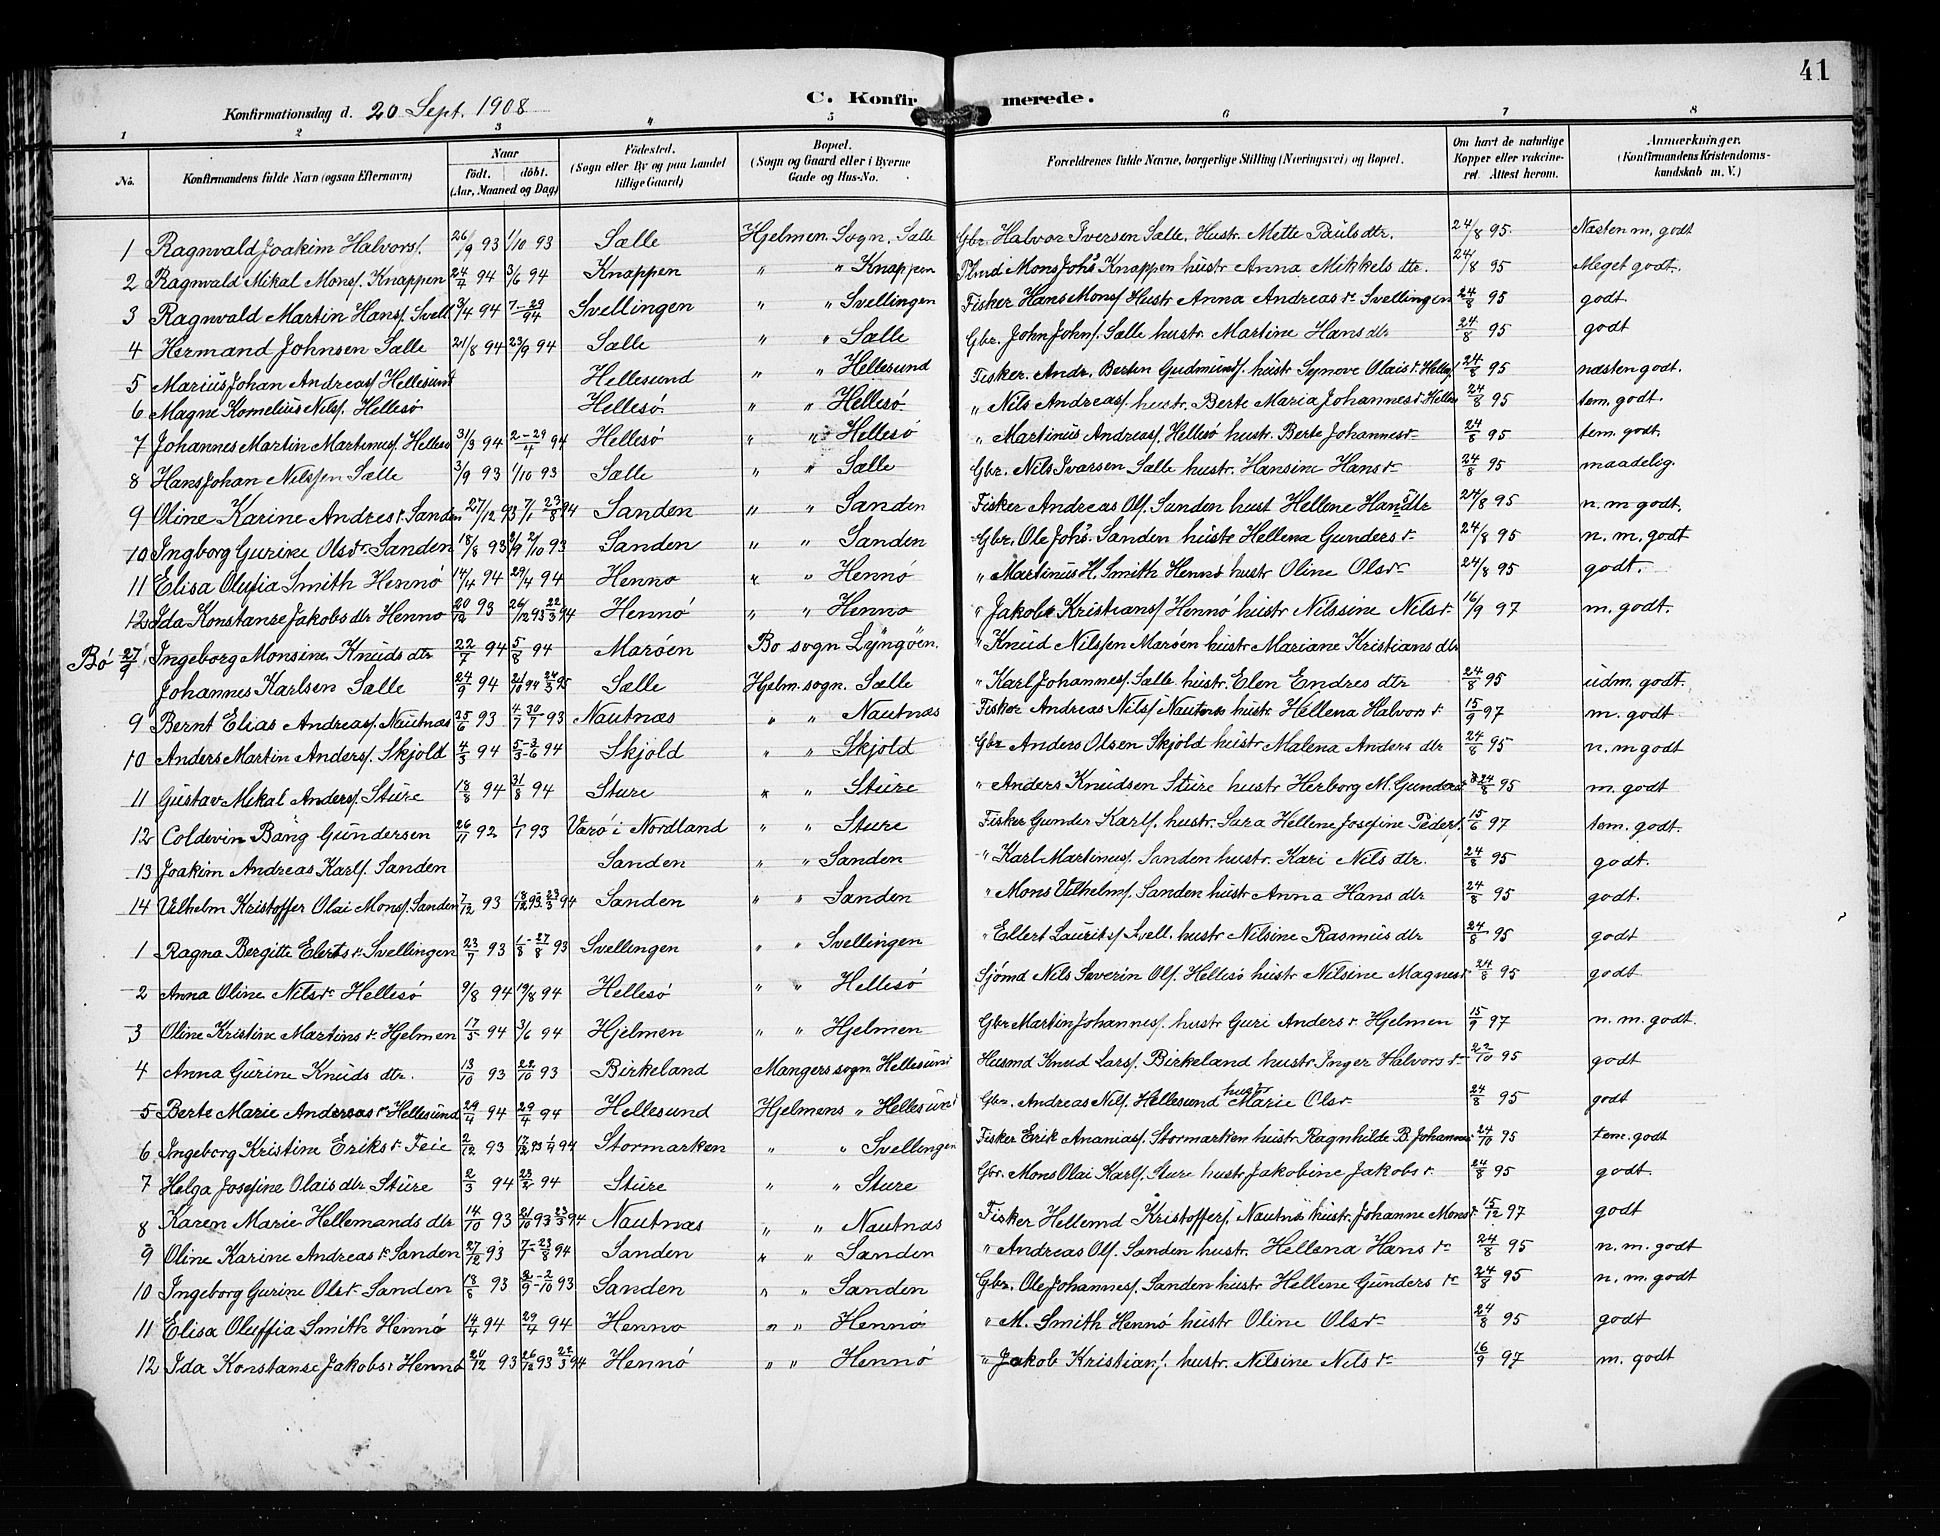 41
C. Konfirmerede.
Konfirmationsdag d. 20 Sept. 1908
1 2 3 4 5 6 7 8
No. Konfirmandens fulde Navn (ogsaa Efternavn) Naar født. døbt. (Aar, Maaned og Dag) Fødested. (Sogn eller By og paa Landet tillige Gaard) Bopæl. (Sogn og Gaard eller i Byerne Gade og Hus-No. Forældrenes fulde Navne, borgerlige Stilling (Næringsvei) og Bopæl. Om havt de naturlige Kopper eller vakcineret. Attest herom. Anmærkninger. (Konfirmandens Kristendomskundskab m. V.)
1 Ragnvald Joakim Halvors. 26/9 93 1/10 93 Sælle Hjelmen Sogn. Sælle Gbr. Halvor Iversen Sælle. Hustr. Mette Pauls dtr. 24/8 95. Næsten m. godt
2 Ragnvald Mikal Mons. Knappen 24/4 94 3/6 94 Knappen " " Knappen Mons Johs Knappen hustr Anna Mikkels dtr. 24/8 95 Meget godt.
3 Ragnvald Martin Hans. Svell 3/4 94 7-29/94 Svellingen " " Svellingen Fisker Hans Mons. Hustr Anna Andreas dr Svellingen 24/8 95 godt
4 Hermand Johnsen Sælle 21/8 94 23/9 94 Sælle " " Sælle Gbr. John Johns. Sælle hustr. Martine Hans dtr 24/8 95 godt
5 Marius Johan Andreas. Hellesund Hellesund " " Hellesund Fisker. Andr. Berten Gudmunds. hustr Synove Olais dr. 24/8 95 næsten godt.
6 Magne Kornelius Nils. Hellesö Hellesö. " " Hellesö. " Nils Andreas. hustr. Berte Maria Johannes dr. Helles 24/8 95 tem. godt.
7 Johannes Martin Martinus. Helles 31/3 94 2-29/4 94 Hellesö " " Hellesö " Martinus Andreas. Hellesö hustr. Berte Johannes dr 24/8 95 tem. godt.
8 Hans Johan Nilssen Sælle 3/9 93 1/10 93 Sælle " " Sælle Gbr. Nils Ivarsen Sælle hustr. Hansine Hans dr 24/8 95 maadelig.
9 Oline Karine Andres dr. Sanden 27/12 93 7/1 23/8 94 Sanden " " Sanden Fisker Andreas Ols. Sanden hust Hellene Hans dtr 24/8 95 n. m godt.
10 Ingborg Gurine Ols dr. Sanden 18/8 93 2/9 2/10 93 Sanden " " Sanden Gbr. Ole Johs. Sanden hustr Hellena Gunders dr 24/8 95 n. m. godt
11 Elisa Olufia Smith Hennö 14/4 94 29/4 94 Henno " " Hennö " Martinus H. Smith Hennö hustr Oline Ols dr 24/8 95 godt.
12 Ida Konstanse Jakobs dtr Henno 20/12 93 26/12 93 22/3 94 Hennö " " Henno " Jakob Kristians. Hennö hustr Nilssine Nils dr. 16/9 97 m. godt.
Bö 27/9 Ingeborg Monsine Knuds dtr 22/7 94 5/8 94 Maröen Bo sogn Lyngöen. " Knud Nilssen Maröen hustr Mariane Kristians dtr
Johannes Karlsen Sælle 24/9 94 21/10 94 24/3 95 Sælle Hjelm. sogn. Sælle " Karl Johannes. Sælle hustr. Elen Endres dtr 24/8 95 udm. godt.
9 Bernt Elias Andreas. Nautnæs 25/6 93 4/7 30/7 93 Nautnæs " " Nautnæs Fisker Andreas Nils. Nautnæs hustr Hellena Halvors dr 15/9 97 m. godt
10 Anders Martin Anders. Skjold 4/3 94 5/3-3/6 94 Skjold " " Skjold Gbr Anders Olsen Skjold hustr Malena Anders dtr 24/8 95 n. m godt
11 Gustav Mikal Anders. Sture 18/8 94 31/8 94 Sture " " Sture " Anders Knudsen Sture hustr Herborg M. Gunders 24/8 95 m. godt
12 Coldevin Bang Gundersen 26/11 92 1/1 93 Værö i Nordland " " Sture Fisker Gunder Karls. hustr. Sara Hellene Josefine Peders. 15/6 97 tem. godt.
13 Joakim Andreas Karls. Sanden Sanden " " Sanden " Karl Martinus. Sanden hustr. Kari Nils dtr. 24/8 95 godt.
14 Vilhelm Kristoffer Olai Mons. Sanden 7/12 93 18/12 93-23/3 94 Sanden " " Sanden " Mons Vilhelms. Sanden hustr Anna Hans dtr 24/8 95 godt.
1 Ragna Bergitte Elerts dr. Svellingen 23/7 93 1/8-27/8 93 Svellingen " " Svellingen " Ellert Laurits. Svell. hustr Nilsine Rasmus dtr 24/8 95 godt
2 Anna Oline Nils dr Hellesö 9/8 94 19/8 94 Hellesö " " Hellesö Sjömd Nils Severin Ols. Hellesö hustr Nilsine Magnes dr 24/8 95 godt
3 Oline Kristine Martins dr. Hjelmen 17/5 94 3/6 94 Hjelmen " " Hjelmen Gbr Martin Johannes. hustr Guri Anders dr. Hjelmen 15/9 97 n. m. godt.
4 Anna Gurine Knuds dtr. 13/10 93 22/10 93 Birkeland Mangers sogn Hellesund Husmd Knud Lars. Birkeland hustr Inger Halvors dr 22/10 95 godt
5 Berte Marie Andersas dr Hellesund 29/4 94 29/4 94 Hellesund Hjelmens " Hellesund Gbr. Andreas Nils. Hellesund hustr Marie Ols dr 24/8 95 godt
6 Ingeborg Kristine Eriks dr. Feie 2/12 93 17/12 93 1/4 94 Stormarken " " Svellingen Fisker Erik Ananias. Stormarken hustr Ragnhilde B. Johannes 24/10 95 tem. godt
7 Helga Josefine Olais dtr Sture 2/3 94 22/2 94 Sture " " Sture Gbr. Mons Olai Karls. Sture hustr Jakobine Jakobs dr. 24/8 95 godt
8 Karen Marie Hellemands dtr 14/10 93 21/10 93 23/3 94 Nautnæs " " Nautnæs Fisker Hellemd Kristoffers. Nautnæs hustr. Johanne Mons dr 15/12 97 godt
9 Oline Karine Andreas dr. Sanden 27/12 93 7/1-23/8 94 Sanden " " Sanden " Andreas Ols. Sanden hustr. Hellena Hans dr 24/8 95 n. m. godt
10 Ingeborg Gurine Ols dr. Sanden 18/8 93 2/9-2/10 93 Sanden " " Sanden Gbr. Ole Johannes. Sanden hustr Hellene Gunders dr 24/8 95 n. m. godt
11 Elisa Oluffia Smith Hennö 14/4 94 29/4 94 Henno " " Hennö " M. Smith Hennö hustr Oline Ols dr 24/8 95 godt
12 Ida Konstanse Jakobs dr Hennö 20/12 93 26/12 93 22/3 94 Hennö " " Hennö " Jakob Kristians. hustr. Nilsine Nils dr 16/9 97 m. godt